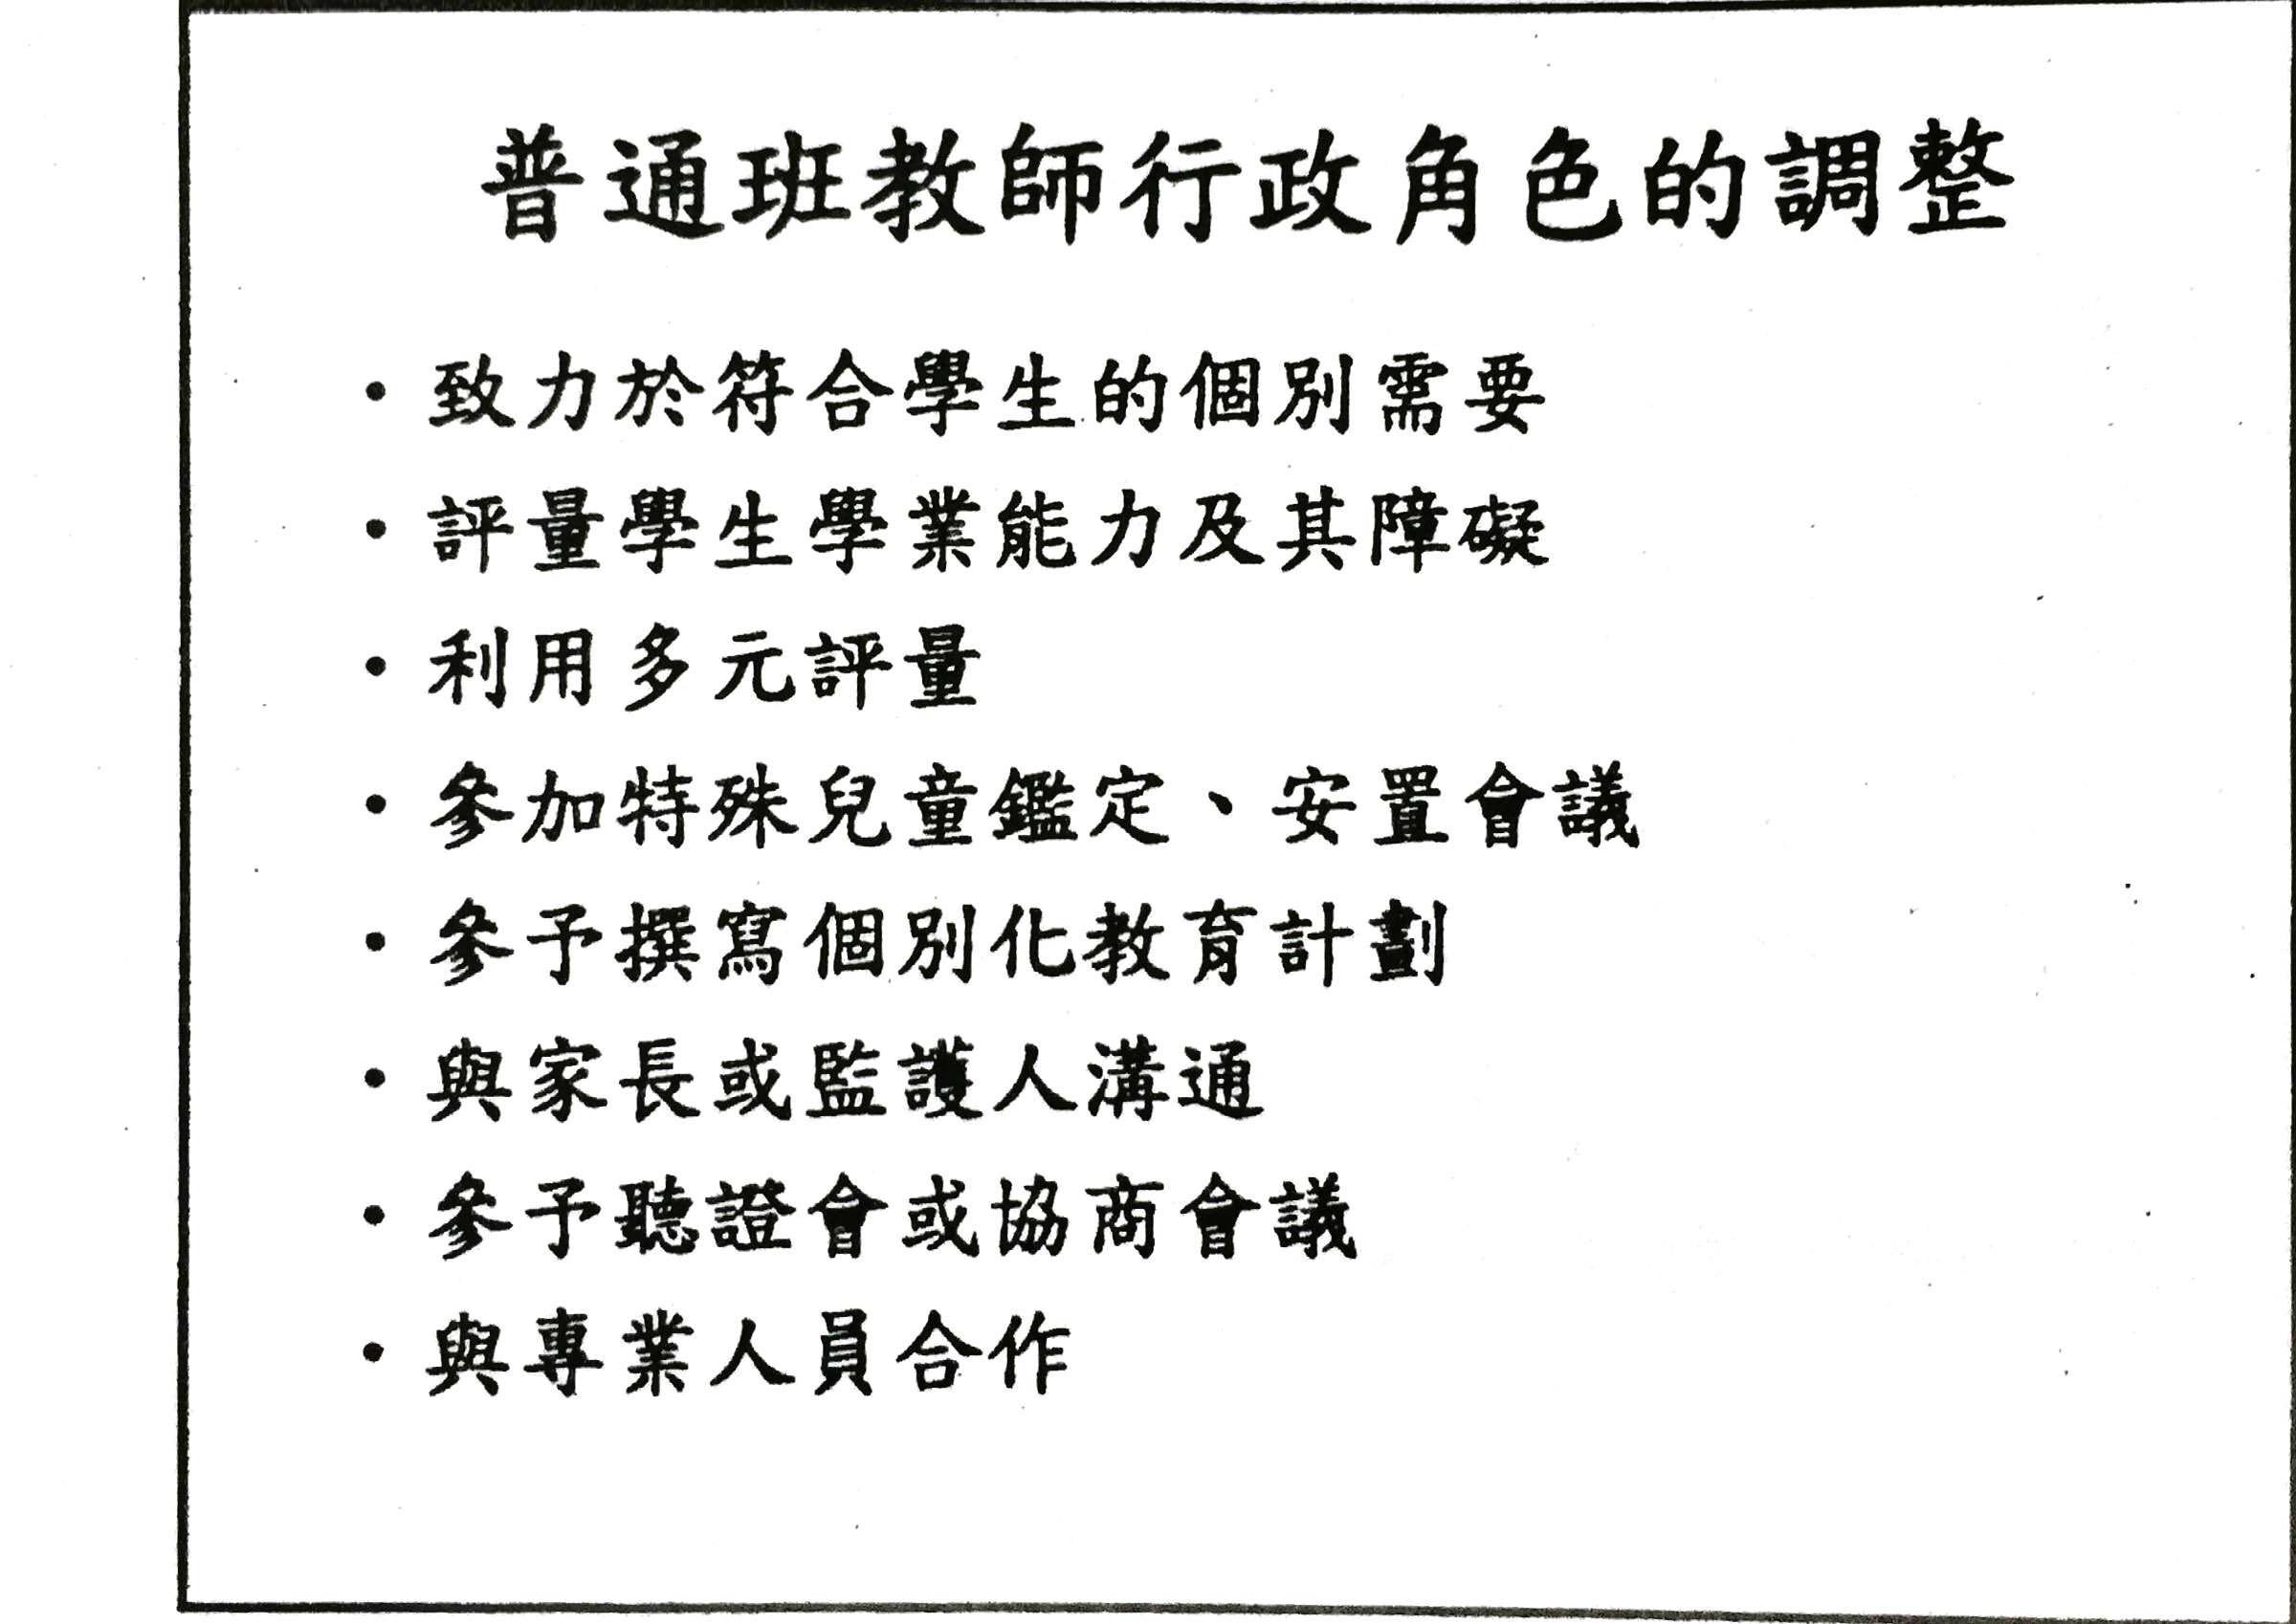 普通班教師行政角色的調整
・致力於符合學生的個別需要
・評量學生學業能力及其障礙
・利用多元評量
・參加特殊兒童鑑定、安置會議
・參予撰寫個別化教育計劃
・與家長或監護人溝通
・參予聽證會或協商會議
・與專業人員合作